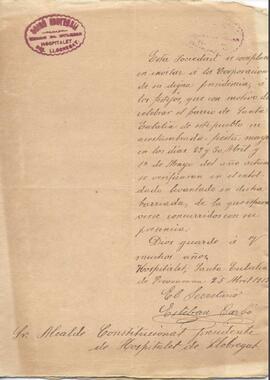 HOSPITALET
DEL LLOBREGAT
Esta Sociedad se complace
en invitar á la Corporación
de su digna presidencia, á
los festejos, que con motivo de
celebrar el barrio de Santa
Eulalia de este pueblo su
acostumbrada fiesta mayor
en los dias 29 y 30 Abril y
1º de Mayo del año actual
se verificaran en el entol-
dado levantado en dicha
barriada, de la que espera
verse concurridos con su
presencia.
Dios guarde á V
muchos años.
Hospitalet, Santa Eulalia
de Provensana 25 Abril
El Secretario
Esteban
Sr. Alcalde Constitucional presidente
de Hospitalet de Llobregat